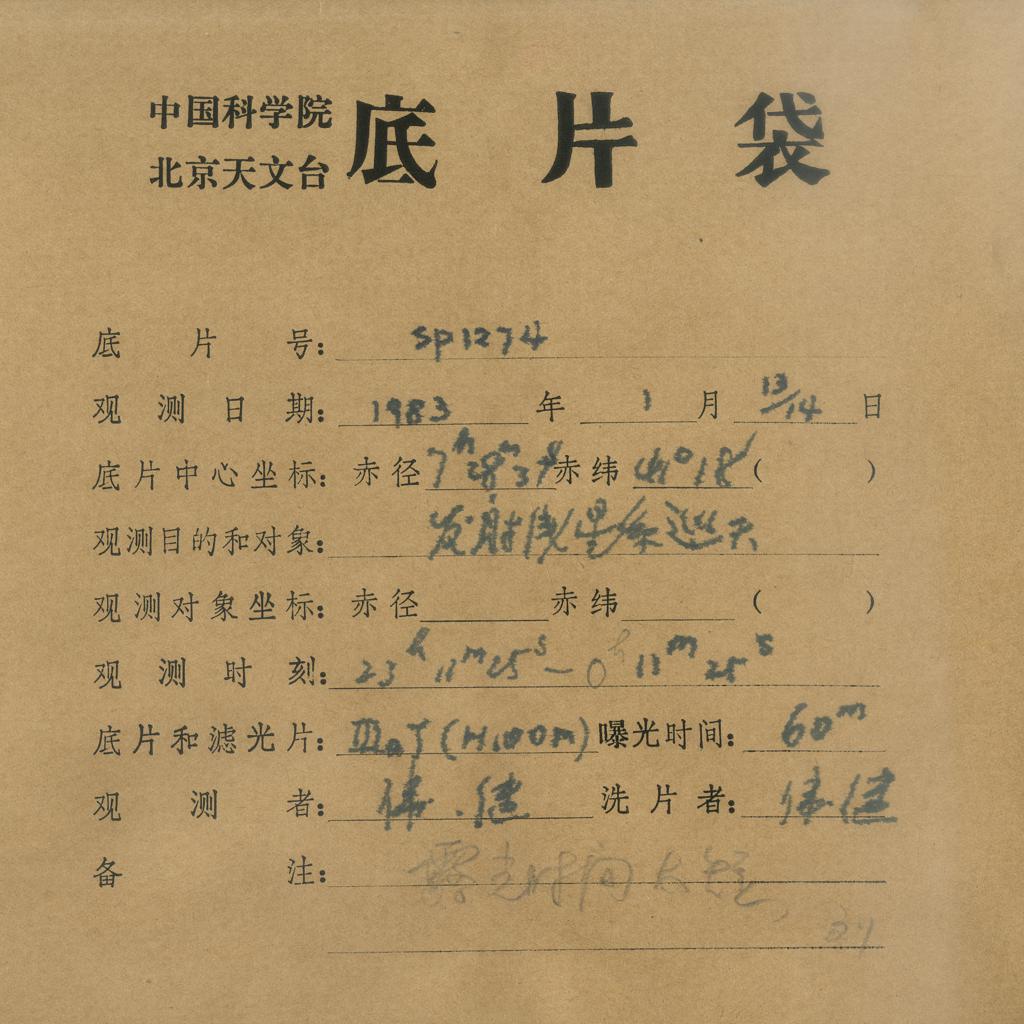 中国科学院
北京天文台
底片袋
底片号: SP1274
观测日期: 1983 年 1 月 13/14 日
底片中心坐标: 赤径 7ʰ28ᵐ37ˢ 赤纬 41°18′ ( )
观测目的和对象: 发射线星系巡天
观测对象坐标: 赤径 赤纬 ( )
观测时刻: 23ʰ11ᵐ25ˢ — 0ʰ11ᵐ25ˢ
底片和滤光片: IIIaJ 曝光时间: 60ᵐ
观测者: 健 洗片者: 健
备注: 曝光时间太短,
刘